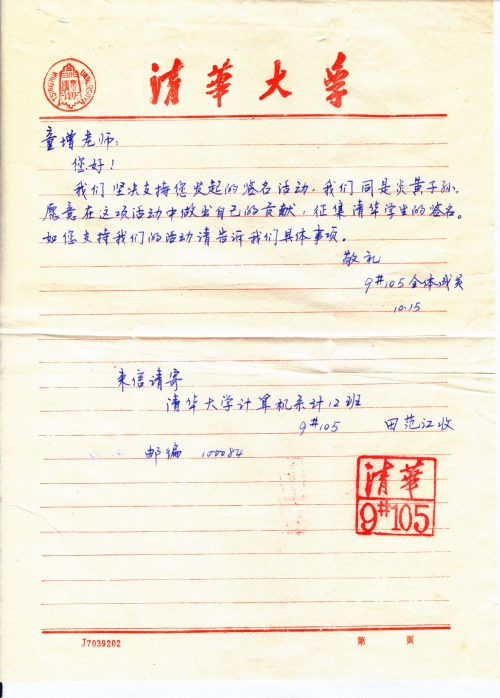 TSINGHUA UNIVERSITY
清華大学
童增老师:
您好!
我们坚决支持您发起的签名活动,我们同是炎黄子孙,
愿意在这项活动中做出自己的贡献:征集清华学生的签名。
如您支持我们的活动请告诉我们具体事项。
敬礼
9#105全体成员
10.15
来信请寄
清华大学计算机系计12班
9#105 田范江收
邮编 100084
清華
9#105
J7039202 第 页